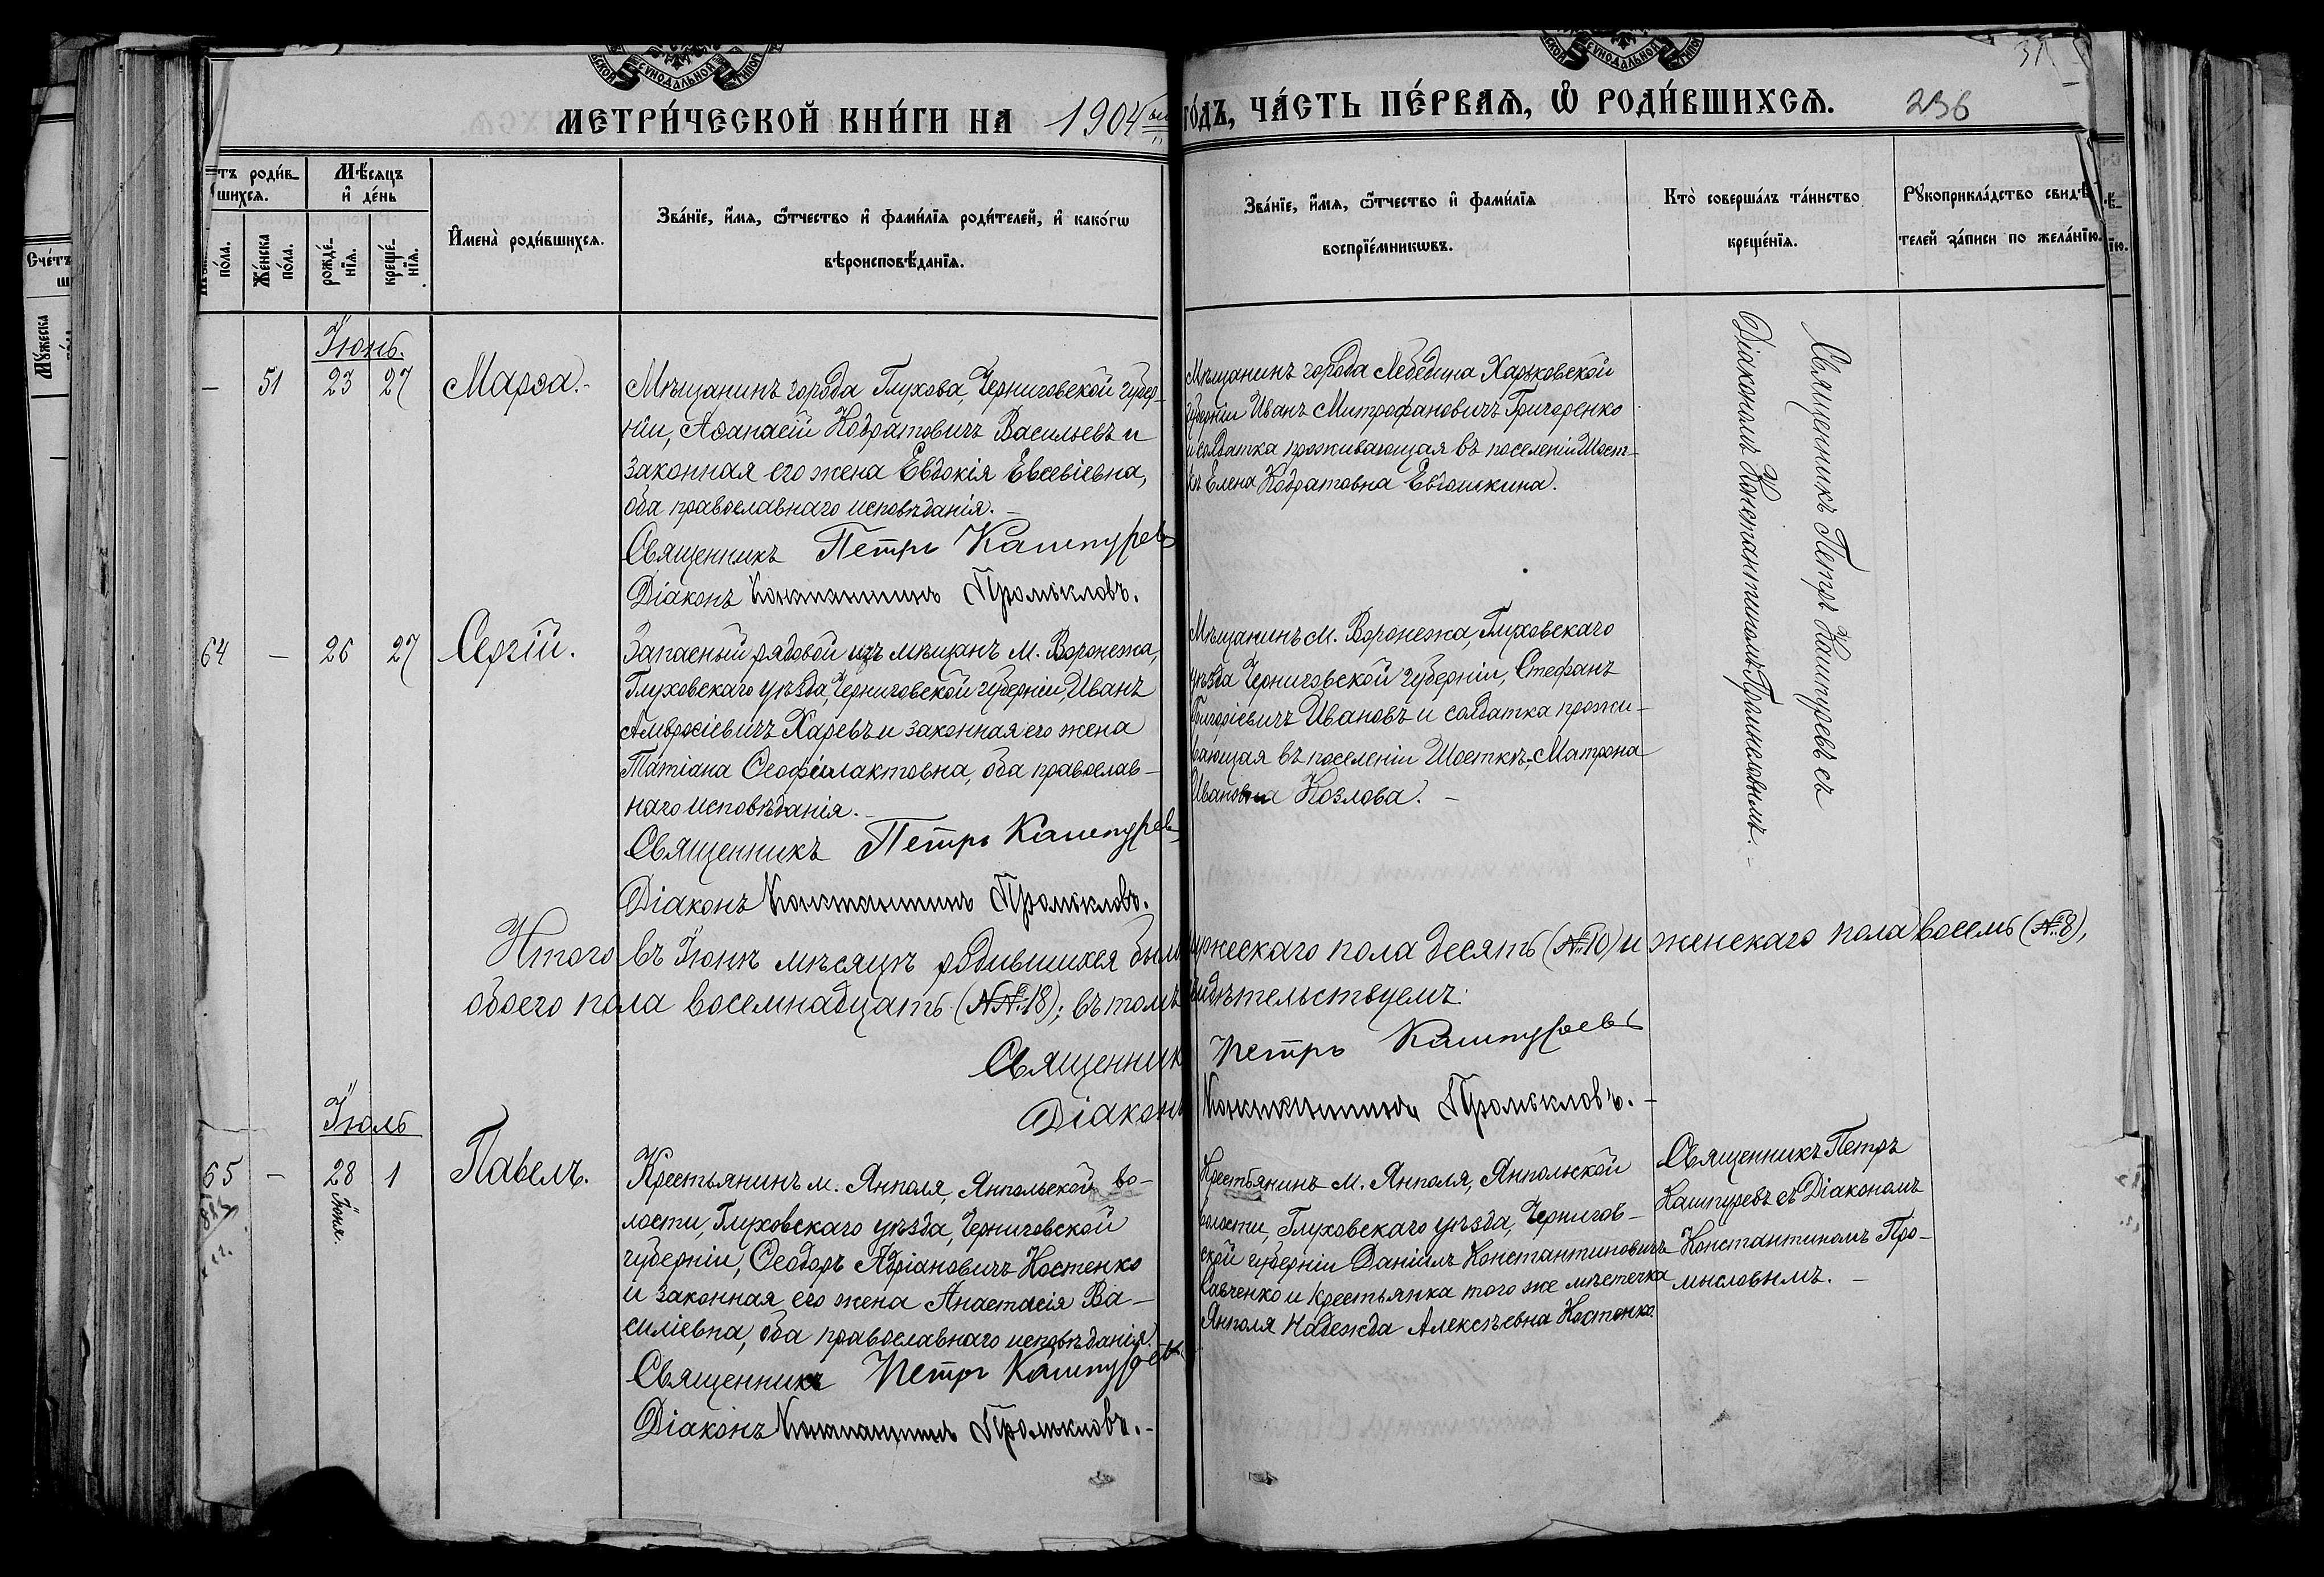 СѴНОДАЛЬНОЙ
СѴНОДАЛЬНОЙ
МЕТРИ́ЧЕСКОЙ КНИ́ГИ НА 1904
ГО́ДЪ, ЧА́СТЬ ПЕ́РВАѦ, Ѡ РОДИ́ВШИХСѦ. 236
31
Счетъ
Мꙋжеска
тъ роди́в
шихсѧ.
по́ла.
Же́нска
по́ла.
Мѣ́сѧцъ
и҆ де́нь
рожде́
нїѧ.
креще́
нїѧ.
И҆мена̀ роди́вшихсѧ.
Зва́нїе, и҆́мѧ, ѻ҆́тчество и҆ фами́лїѧ роди́телей, и҆ како́гѡ
вѣроисповѣ́данїѧ.
Зва́нїе, и҆́мѧ, ѻ҆́тчество и҆ фами́лїѧ
воспрїе́мникѡвъ.
Кто̀ соверша́лъ та́инство
креще́нїѧ.
Рꙋкоприкла́дство свидѣ́
телей за́писи по жела́нїю.
Іюнь.
— 51 23 27 Марѳа.
Мѣщанинъ города Глухова, Черниговской губер-
ніи, Аѳанасій Кодратовичъ Васильевъ и
законная его жена Евдокія Евсевіевна,
оба православнаго исповѣданія. —
Священникъ Петръ Кашпуревъ
Діаконъ Константинъ Промысловъ.
Мѣщанинъ города Лебедина Харьковской
губерніи Иванъ Митрофановичъ Григоренко
и солдатка проживающая въ поселеніи Шост-
кѣ Елена Кодратовна Евдошкина.
Священникъ Петръ Кашпуревъ съ
Діакономъ Константиномъ Промысловымъ. —
64 — 26 27 Сергій.
Запасный рядовой изъ мѣщанъ м. Воронежа,
Глуховскаго уѣзда, Черниговской губерніи, Иванъ
Амвросіевичъ Харевъ и законная его жена
Татіана Ѳеофилактовна, оба православ-
наго исповѣданія. —
Священникъ Петръ Кашпуревъ
Діаконъ Константинъ Промысловъ.
Мѣщанинъ м. Воронежа, Глуховскаго
уѣзда Черниговской губерніи, Стефанъ
Григоріевичъ Ивановъ и солдатка прожи-
вающая въ поселеніи Шосткѣ, Матрона
Ивановна Козлова. —
Итого въ Іюнѣ мѣсяцѣ родившихся было мужескаго пола десять (№ 10) и женскаго пола восемь (№ 8),
обоего пола восемнадцать (№№ 18); въ томъ свидѣтельствуемъ:
Священникъ Петръ Кашпуревъ
Діаконъ Константинъ Промысловъ. —
Іюль
65 — 28 Іюня. 1 Павелъ.
Крестьянинъ м. Янполя, Янпольской во-
лости, Глуховскаго уѣзда, Черниговской
губерніи, Ѳеодоръ Адріановичъ Костенко
и законная его жена Анастасія Ва-
силіевна, оба православнаго исповѣданія.
Священникъ Петръ Кашпуревъ
Діаконъ Константинъ Промысловъ. —
Крестьянинъ м. Янполя, Янпольской
волости, Глуховскаго уѣзда, Чернигов-
ской губерніи Даніилъ Константиновичъ
Савченко и крестьянка того же мѣстечка
Янполя Надежда Алексѣевна Костенко.
Священникъ Петръ
Кашпуревъ съ Діакономъ
Константиномъ Про-
мысловымъ. —